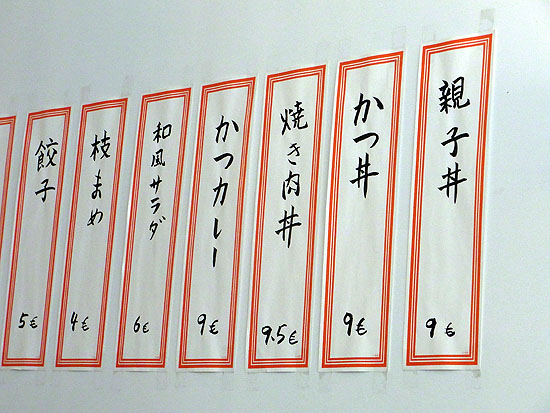 親子丼
9€
かつ丼
9€
焼き肉丼
9.5€
かつカレー
9€
和風サラダ
6€
枝まめ
4€
餃子
5€